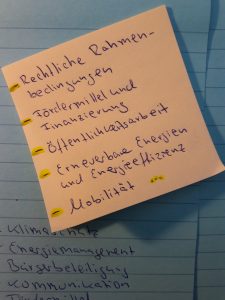 - Rechtliche Rahmen-
bedingungen
- Fördermittel und
Finanzierung
- Öffentlichkeitsarbeit
- Erneuerbare Energien
und Energieeffizienz
- Mobilität ...
- Klimaschutz
- Energiemanagement
Bürgerbeteiligung
Kommunikation